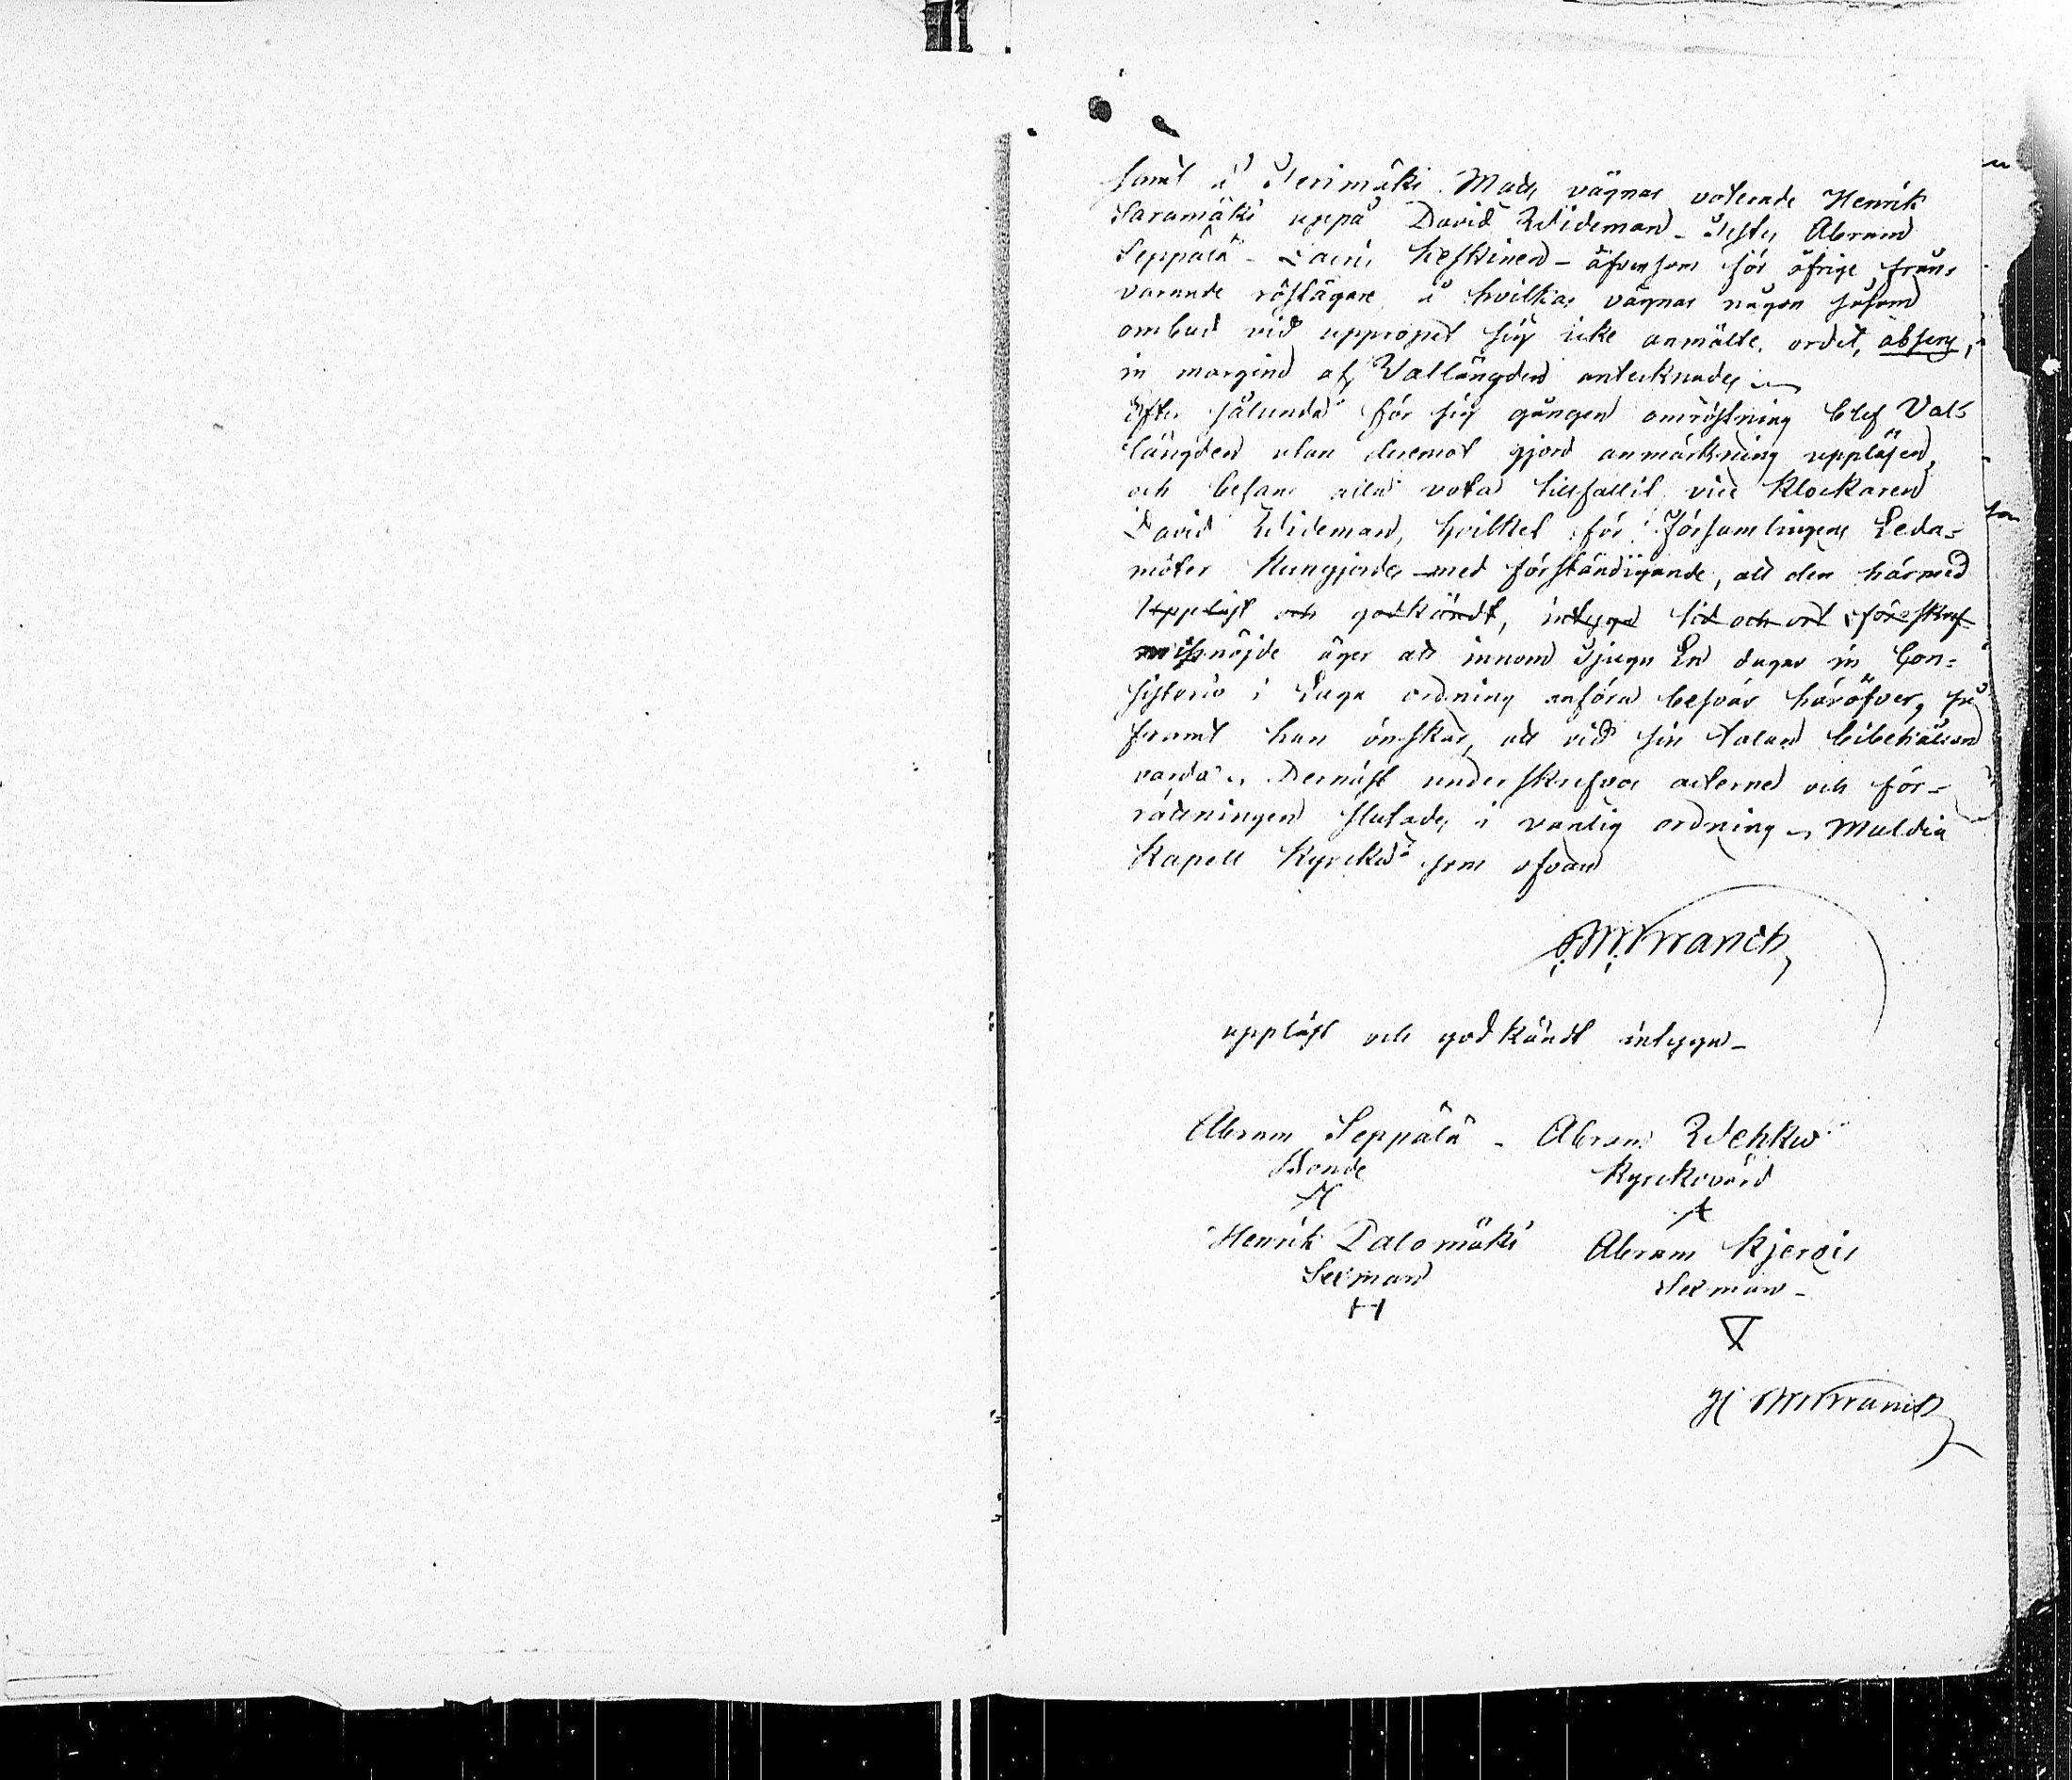 samt å Terimäki Mads vägnar voterade Henrik
Saramäki uppå David Wideman – Abram
Seppälä – Heskinen – äfvensom för öfrige från-
varande röstägare å hvilkas vägnar någon såsom
ombud vid uppropet sig icke anmälte, ordet, absens,
in margine af Vallängden antecknades
Efter sålunda för sig gången omröstning blef Val-
längden utan deremot gjord anmärkning uppläsen,
och befans alla vota tillfallit vice Klockaren
David Wideman, hvilket för Församlingens Leda-
möter kungjordes med förständigande, att den härmed
Uppläst och godkändt, intyga tid och ort föreskref
missnöjde äger att innom Tjugu En dagar in Con-
sistorio i Laga ordning anföra besvär häröfver, så
framt han önskar, att vid sin talan bibehållen
varda. Dernäst underskrefvos acterne och för-
rättningen slutades i vanlig ordning Muldia
Kapell Kyrcka som ofvan
uppläst och godkändt intyga –
Abram Seppälä – Abram Wehko
Bonde Kyrckovärd
Henrik Palomäki Abram Kjerois
Sexman Sexman –
H